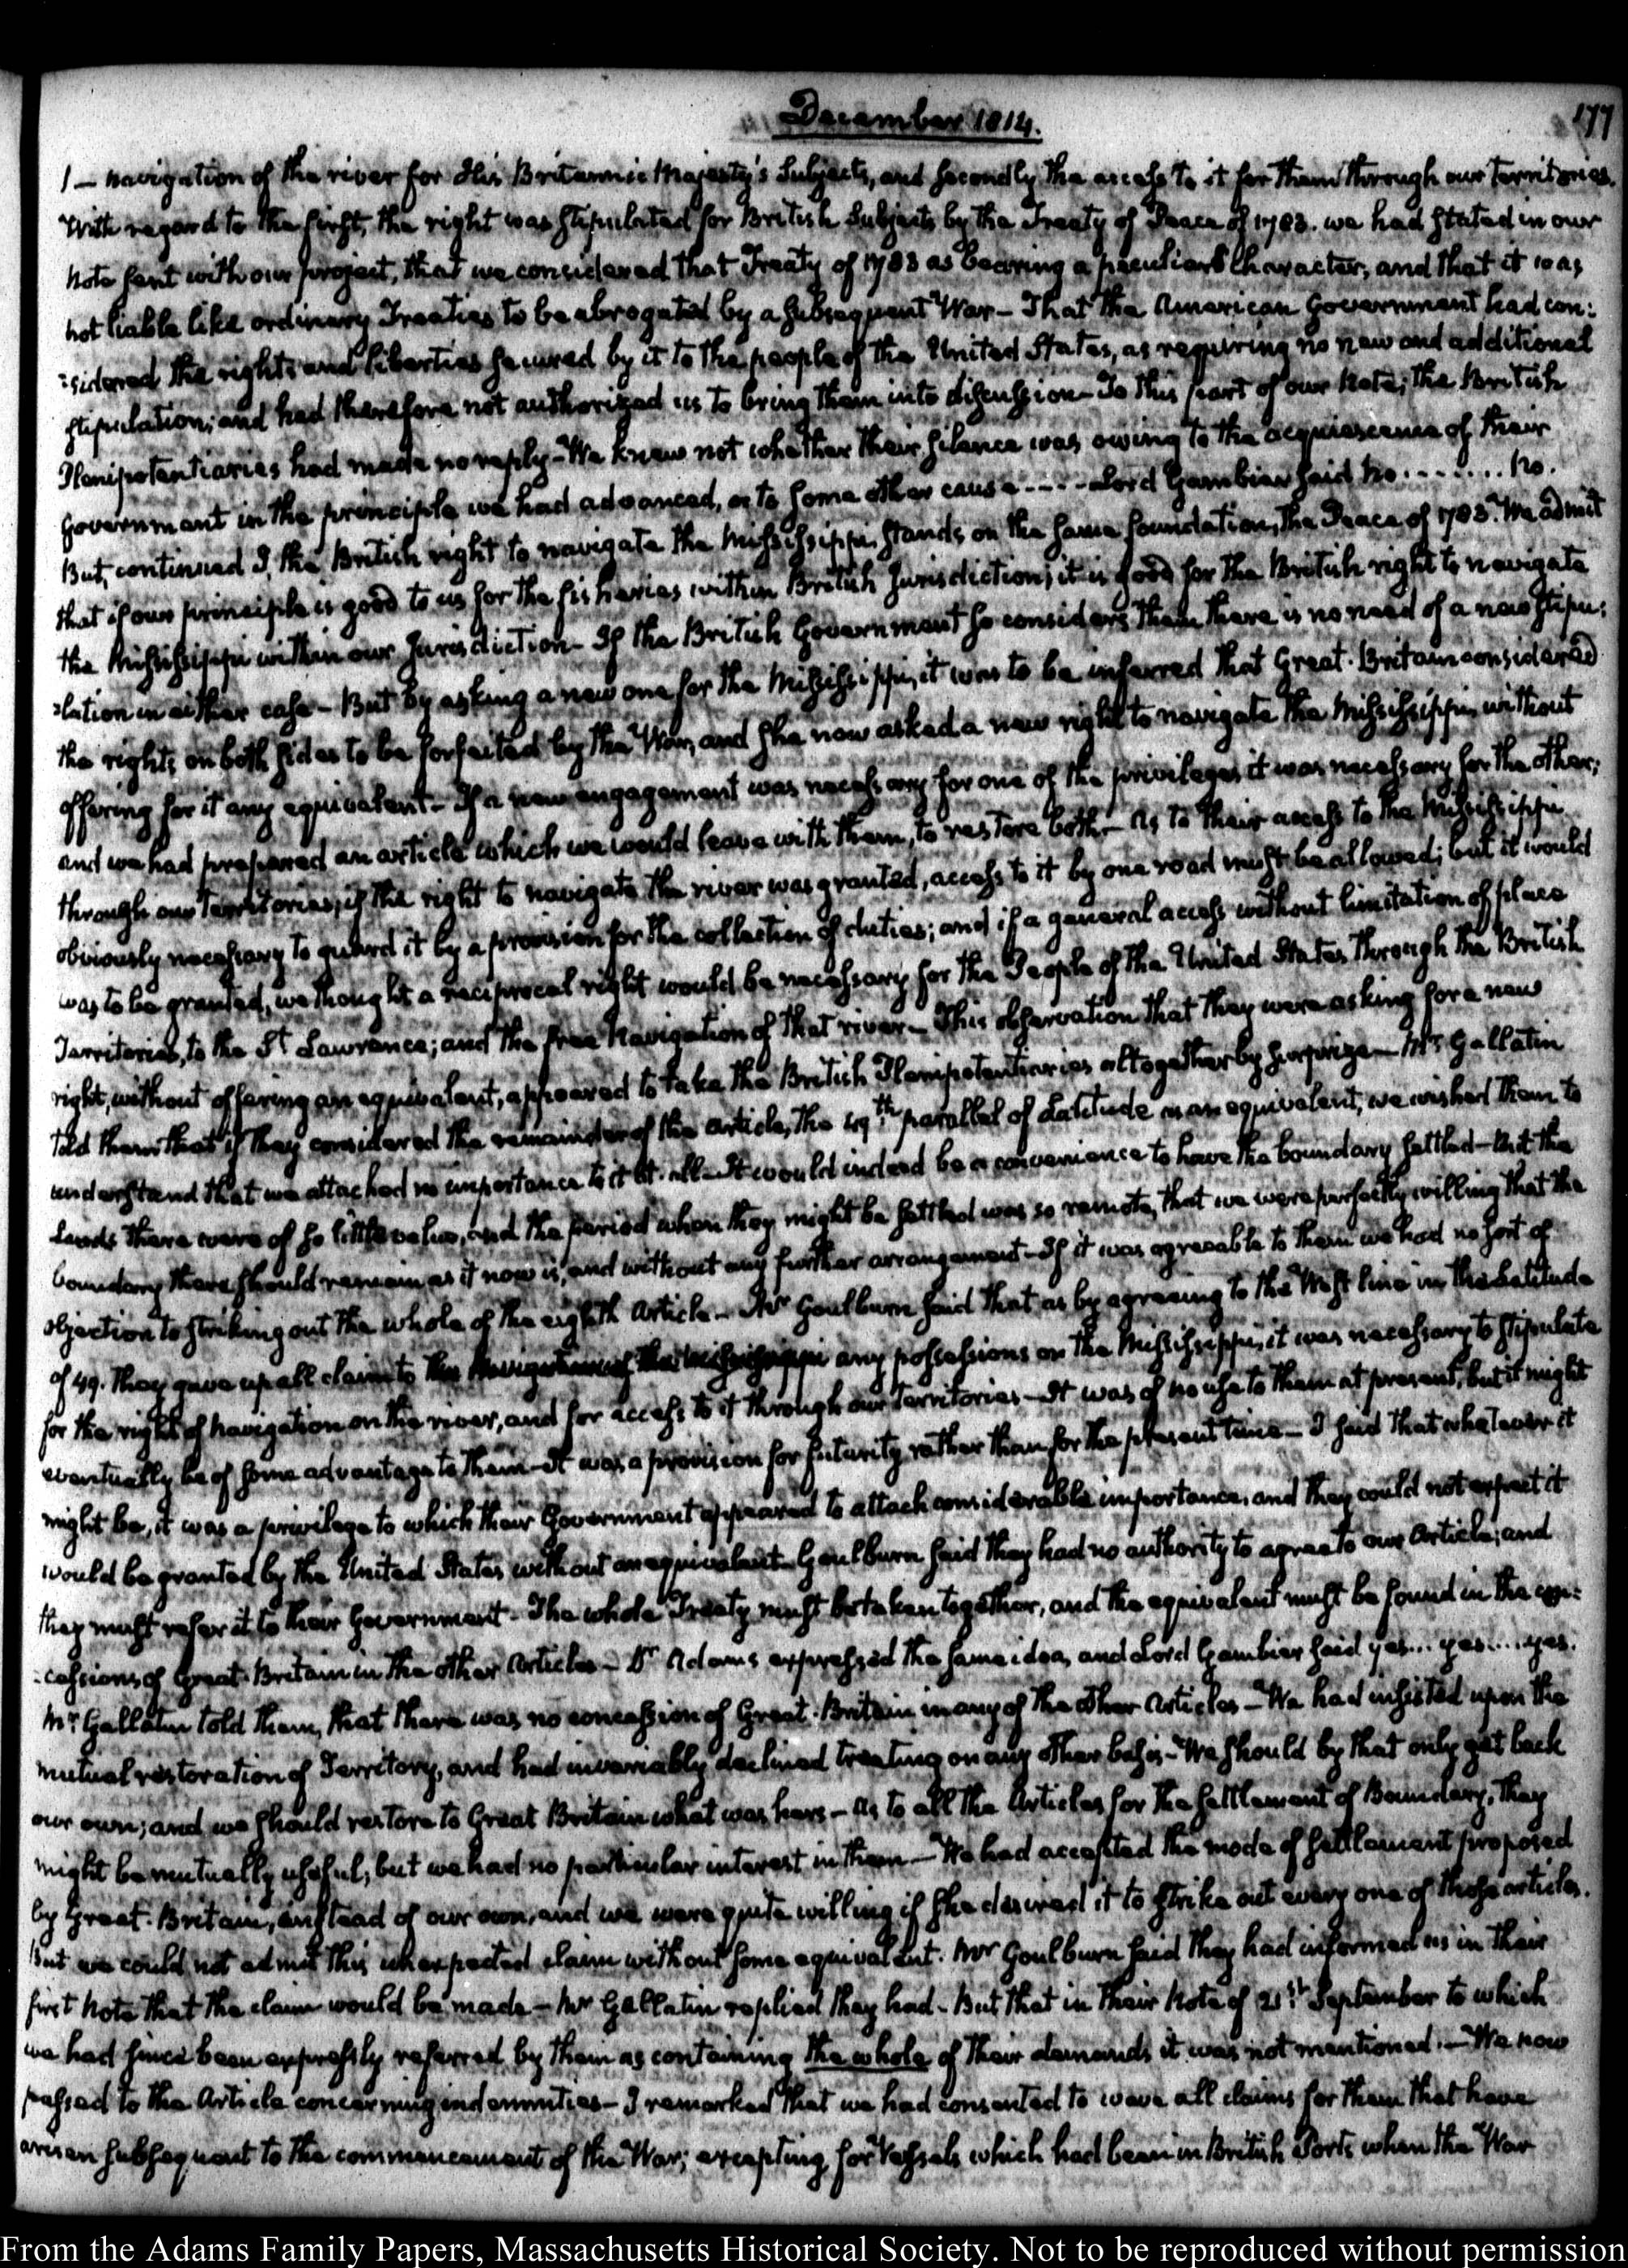 December 1814.
177
1 — navigation of the river for His Britannic Majesty's Subjects, and secondly the access to it for them through our Territories.
With regard to the first, the right was stipulated for British Subjects by the Treaty of Peace of 1783. we had stated in our
Note sent with our project, that we considered that Treaty of 1783 as bearing a peculiar Character, and that it was
not liable like ordinary Treaties to be abrogated by a subsequent War — That the American Government had con:
:sidered the rights and liberties secured by it to the people of the United States, as requiring no new and additional
stipulation; and had therefore not authorized us to bring them into discussion — To this part of our Note, the British
Plenipotentiaries had made no reply — We knew not whether their silence was owing to the acquiescence of their
Government in the principle we had advanced, or to some other cause - - - - Lord Gambier said No . - - - . . . No.
But, continued I, the British right to navigate the Mississippi, stands on the same foundation, the Peace of 1783. We admit
that if our principle is good to us for the fisheries within British Jurisdiction, it is good for the British right to navigate
the Mississippi within our Jurisdiction — If the British Government so considers them there is no need of a new stipu:
:lation in either case — But by asking a new one for the Mississippi, it was to be inferred that Great-Britain considered
the rights on both sides to be forfeited by the War, and she now asked a new right to navigate the Mississippi, without
offering for it any equivalent — If a new engagement was necessary for one of the privileges it was necessary for the other;
and we had prepared an article which we would leave with them, to restore both — As to their access to the Mississippi
through our Territories, if the right to navigate the river was granted, access to it by one road must be allowed; but it would
obviously necessary to guard it by a provision for the collection of duties; and if a general access without limitation of place
was to be granted, we thought a reciprocal right would be necessary for the People of the United States through the British
Territories, to the St Lawrence; and the free Navigation of that river — This observation that they were asking for a new
right, without offering an equivalent, appeared to take the British Plenipotentiaries altogether by surprize — Mr Gallatin
told them that if they considered the remainder of the article, the 49th parallel of Latitude as an equivalent, we wished them to
understand that we attached no importance to it at all — It would indeed be a convenience to have the boundary settled — But the
Lands there were of so little value, and the period when they might be settled was so remote, that we were perfectly willing that the
boundary there should remain as it now is, and without any further arrangement — If it was agreeable to them we had no sort of
objection to striking out the whole of the eighth Article — Mr Goulburn said that as by agreeing to the West line in the Latitude
of 49. they gave up all claim to the Navigation of the Mississippi any possessions on the Mississippi, it was necessary to stipulate
for the right of navigation on the river, and for access to it through our Territories — It was of no use to them at present, but it might
eventually be of some advantage to them — It was a provision for futurity rather than for the present time — I said that whatever it
might be, it was a privilege to which their Government appeared to attach considerable importance, and they could not expect it
would be granted by the United States without an equivalent — Goulburn said they had no authority to agree to our Article; and
they must refer it to their Government — The whole Treaty must be taken together, and the equivalent must be found in the con:
:cessions of Great-Britain in the other Articles — Dr Adams expressed the same idea, and Lord Gambier said yes... yes.... yes.
Mr Gallatin told them, that there was no concession of Great-Britain in any of the other Articles — We had insisted upon the
mutual restoration of Territory, and had invariably declined treating on any other basis — We should by that only get back
our own; and we should restore to Great Britain what was hers — As to all the Articles for the settlement of Boundary, they
might be mutually useful, but we had no particular interest in them — We had accepted the mode of settlement proposed
by Great-Britain, instead of our own, and we were quite willing if she desired it to strike out every one of those articles.
But we could not admit this unexpected claim without some equivalent. Mr Goulburn said they had informed us in their
first Note that the claim would be made — Mr Gallatin replied they had — But that in their Note of 21st September to which
we had since been expressly referred by them as containing the whole of their demands it was not mentioned. — We now
passed to the Article concerning indemnities — I remarked that we had consented to wave all claims for them that have
arisen subsequent to the commencement of the War; excepting for Vessels which had been in British Ports when the War
From the Adams Family Papers, Massachusetts Historical Society. Not to be reproduced without permission